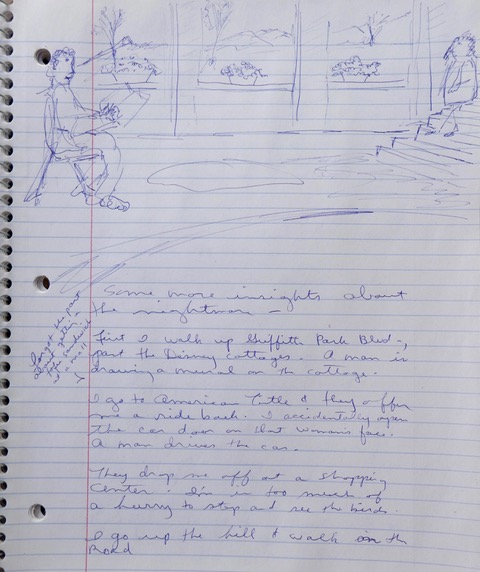 Some more insights about
the nightmare —
First I walk up Griffith Park Blvd.,
past the Disney cottages. A man is
drawing a mural on the cottage.
I go to American Title & they offer
me a ride back. I accidentally open
the car door on that woman's face.
A man drives the car.
They drop me off at a shopping
Center. I'm in too much of
a hurry to stop and see the birds.
I go up the hill & walk in the
Road
I forgot the part
about getting a
sandwich
at a mall